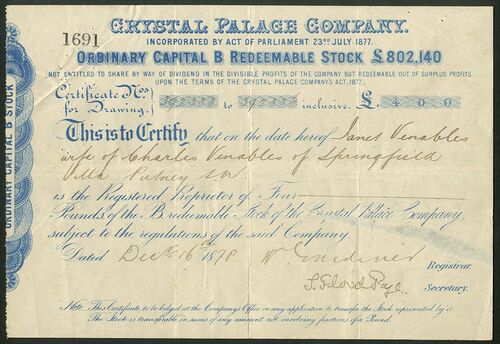 CRYSTAL PALACE COMPANY.
1691
INCORPORATED BY ACT OF PARLIAMENT 23RD JULY 1877.
ORDINARY CAPITAL B REDEEMABLE STOCK £802,140
NOT ENTITLED TO SHARE BY WAY OF DIVIDEND IN THE DIVISIBLE PROFITS OF THE COMPANY BUT REDEEMABLE OUT OF SURPLUS PROFITS
UPON THE TERMS OF THE CRYSTAL PALACE COMPANYS ACT, 1877.
Certificate Nos
for Drawing. to inclusive. £ 400
This is to Certify that on the date hereof Janet Venables
wife of Charles Venables of Springfield
Villa Putney S.W.
is the Registered Proprietor of Four
Pounds of the B redeemable Stock of the Crystal Palace Company,
subject to the regulations of the said Company
Dated Decr 16th 1878 Wm Gardiner
Registrar.
Secretary.
Note. This Certificate to be lodged at the Companys Office on any application to transfer the Stock represented by it.
The Stock is transferable in sums of any amount not involving fractions of a Pound.
ORDINARY CAPITAL B STOCK